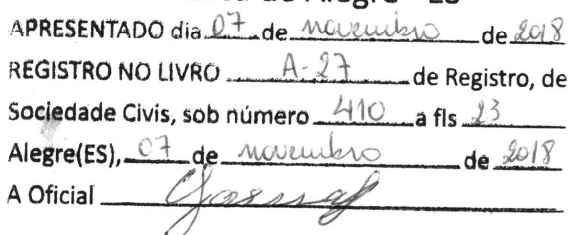 de Alegre - ES
APRESENTADO dia 07 de novembro de 2018
REGISTRO NO LIVRO A-27 de Registro, de
Sociedade Civis, sob número 410 a fls 23
Alegre(ES), 07 de novembro de 2018
A Oficial